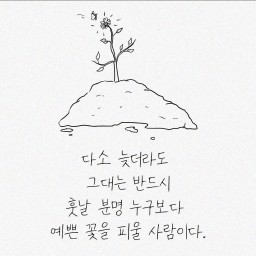 다소 늦더라도
그대는 반드시
훗날 분명 누구보다
예쁜 꽃을 피울 사람이다.